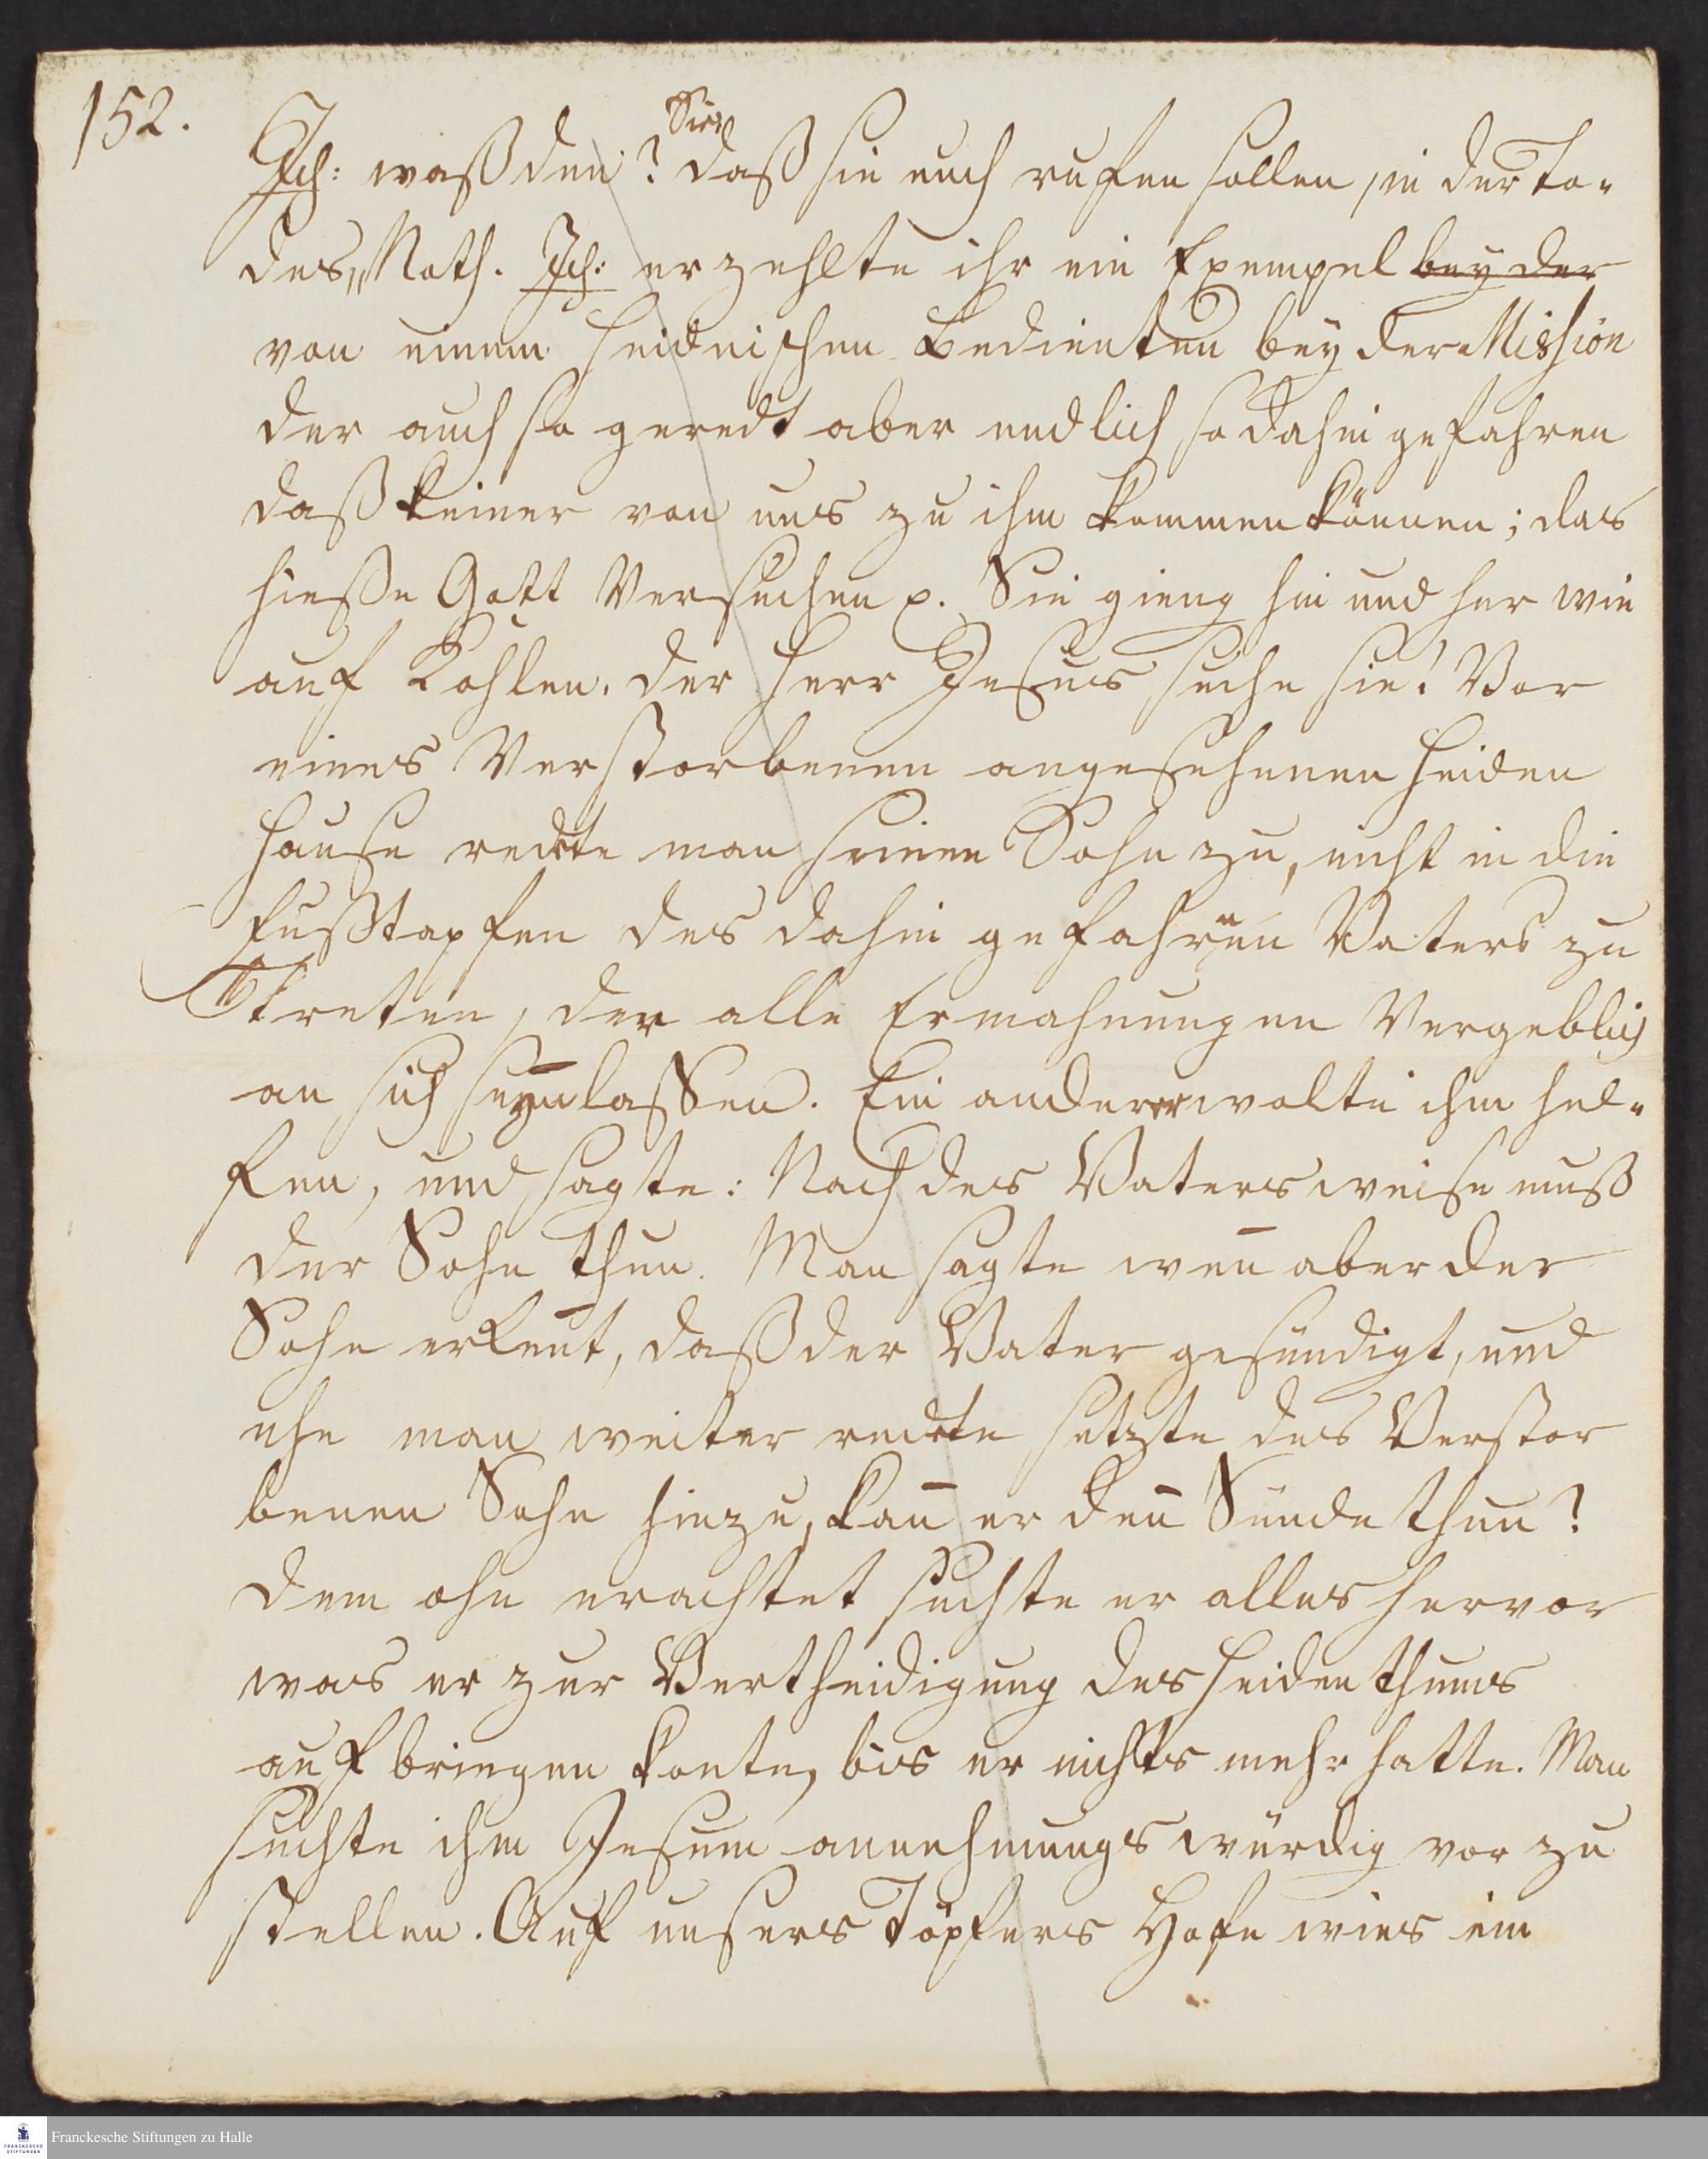 152.
Sie:
Ich: waß den? daß sie euch rufen sollen, in der To-
des-Noth. Ich: erzehlte ihr ein Exempel bey der
von einem heidnischen Bedienten bey der Mission
der auch so geredt aber endlich so dahin gefahren
daß keiner von uns zu ihm kommen können; das
hiesse Gott Versuchen p. Sie gieng hin und her wie
auf Kohlen. der Herr Jesus suche sie! Vor
eines Verstorbenen angesehenen Heiden
Hause redete man seinen Sohn zu, nicht in die
Fußstapfen des dahin gefahrnen Vaters zu
treten, der alle Ermahnungen Vergeblich
an sich seyn lassen. Ein anderer wolte ihm hel-
fen, und sagte: Nach des Vaters weise muß
der Sohn thun. Man sagte weñ aber der
Sohn erkeñt, daß der Vater gesündigt, und
ehe man weiter redete setzte des Verstor
benen Sohn hinzu, kañ er deñ Sünde thun?
dem ohn erachtet suchte er alles hervor
was er zur Vertheidigung des Heidenthums
auf bringen konte, bis er nichts mehr hatte. Man
suchte ihm Jesum annehmungs würdig vor zu
stellen. Auf unsers Töpfers Hofe wies ein
Franckesche Stiftungen zu Halle